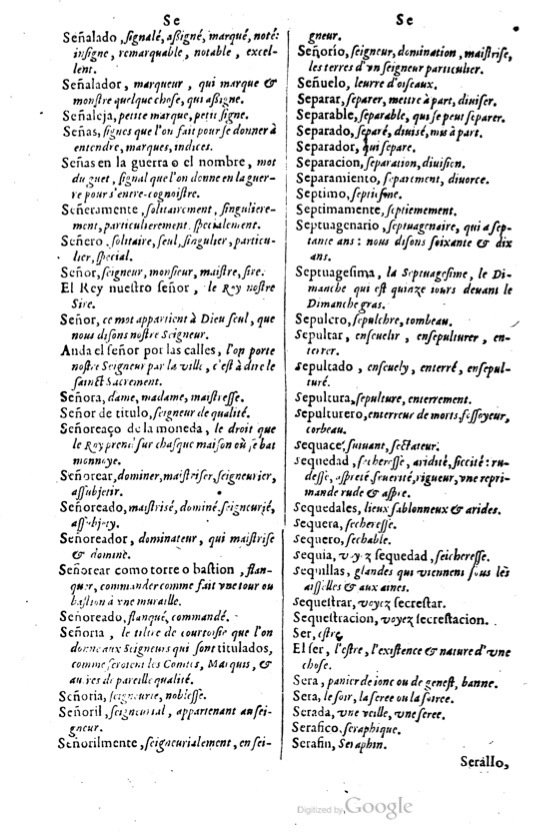 Se
Señalado, ſignalé, aßigné, marqué, noté:
inſigne, remarquable, notable, excel-
lent.
Señalador, marqueur, qui marque &
monſtre quelque choſe, qui aßigne.
Señaleja, petite marque, petit ſigne.
Señas, ſignes que l'on fait pour ſe donner à
entendre, marques, indices.
Señas en la guerra o el nombre, mot
du guet, ſignal que l'on donne en la guer-
re pour s'entre-cognoiſtre.
Señeramente, ſolitairement, ſinguliere-
ment, particulierement, ſpecialement.
Señero, ſolitaire, ſeul, ſingulier, particu-
lier, ſpecial.
Señor, ſeigneur, monſieur, maiſtre, ſire.
El Rey nueſtro ſeñor, le Roy noſtre
Sire.
Señor, ce mot appartient à Dieu ſeul, que
nous diſons noſtre Seigneur.
Anda el ſeñor por las calles, l'on porte
noſtre Seigneur par la ville, c'eſt à dire le
ſainct Sacrement.
Señora, dame, madame, maiſtreſſe.
Señor de titulo, ſeigneur de qualité.
Señoreaço de la moneda, le droit que
le Roy prend ſur chaſque maiſon où ſe bat
monnoye.
Señorear, dominer, maiſtriſer, ſeigneurier,
aſſubjetir.
Señoreado, maiſtriſé, dominé, ſeigneurié,
aſſubjety.
Señoreador, dominateur, qui maiſtriſe
& dominè.
Señorear como torre o baſtion, flan-
quer, commander comme fait vne tour ou
baſtion à vne muraille.
Señoreado, flanqué, commandé.
Señoria, le tiltre de courtoiſie que l'on
donne aux Seigneurs qui ſont titulados,
comme ſeroient les Comtes, Marquis, &
autres de pareille qualité.
Señoria, ſeigneurie, nobleſſe.
Señoril, ſeigneurial, appartenant au ſei-
gneur.
Señorilmente, ſeigneurialement, en ſei-
Se
gneur.
Señorio, ſeigneur, domination, maiſtriſe,
les terres d'vn ſeigneur particulier.
Señuelo, leurre d'oiſeaux.
Separar, ſeparer, mettre à part, diuiſer.
Separable, ſeparable, qui ſe peut ſeparer.
Separado, ſeparé, diuisé, mis à part.
Separador, qui ſepare.
Separacion, ſeparation, diuiſion.
Separamiento, ſeparement, diuorce.
Septimo, ſeptieſme.
Septimamente, ſeptiemement.
Septuagenario, ſeptuagenaire, qui a ſep-
tante ans: nous diſons ſoixante & dix
ans.
Septuageſima, la Septuageſime, le Di-
manche qui eſt quinze iours deuant le
Dimanche gras.
Sepulcro, ſepulchre, tombeau.
Sepultar, enſeuelir, enſepulturer, en-
terrer.
Sepultado, enſeuely, enterré, enſepul-
turé.
Sepultura, ſepulture, enterrement.
Sepulturero, enterreur de morts, foſſoyeur,
corbeau.
Sequace, ſuiuant, ſectateur.
Sequedad, ſechereſſe, aridité, ſiccité: ru-
deſſe, aſpreté, ſeuerité, rigueur, vne repri-
mande rude & aſpre.
Sequedales, lieux ſablonneux & arides.
Sequera, ſechereſſe.
Sequero, ſechable.
Sequia, voyez ſequedad, ſeichereſſe.
Sequillas, glandes qui viennent ſous les
aiſſelles & aux aines.
Sequeſtrar, voyez ſecreſtar.
Sequeſtracion, voyez ſecreſtacion.
Ser, eſtre.
El ſer, l'eſtre, l'exiſtence & nature d'vne
choſe.
Sera, panier de ionc ou de geneſt, banne.
Sera, le ſoir, la ſeree ou la ſoiree.
Serada, vne veille, vne ſeree.
Serafico, ſeraphique.
Serafin, Seraphin.
Serallo,
Digitized by Google